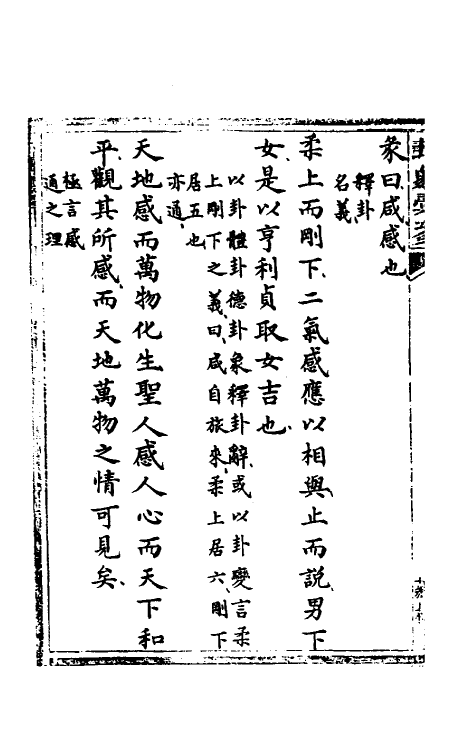 彖曰咸感也
釋卦
名義
柔上而剛下二氣感應以相與止而説男下
女是以亨利貞取女吉也
以卦體卦德卦象釋卦辭或以卦變言柔
上剛下之義曰咸自旅來柔上居六剛下
居五也
亦通
天地感而萬物化生聖人感人心而天下和
平觀其所感而天地萬物之情可見矣
極言感
通之理